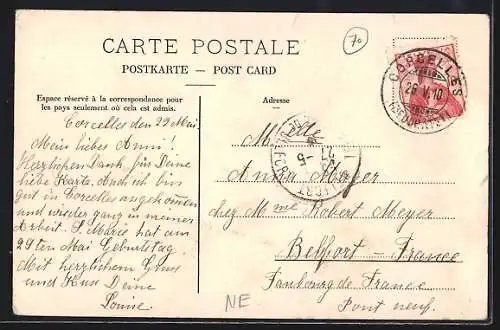 70
CARTE POSTALE
POSTKARTE — POST CARD
Espace réservé à la correspondance pour
les pays seulement où cela est admis.
Adresse
CORCELLES
(NEUCHATEL)
Corcelles den 29 Mai.
Mein liebes Anni!
Herzlichen Dank für Deine
liebe Karte. Auch ich bin
gut in Corcelles angekommen
und wieder ganz in meiner
Arbeit. S. Marie hat am
29ten Mai Geburtstag.
Mit herzlichem Gruss
und Kuss Deine
Louise.
Mlle
Anna Mayer
chez Mme Robert Meyer
Belfort France
Faubourg de France
Pont neuf.
BELFORT
NE